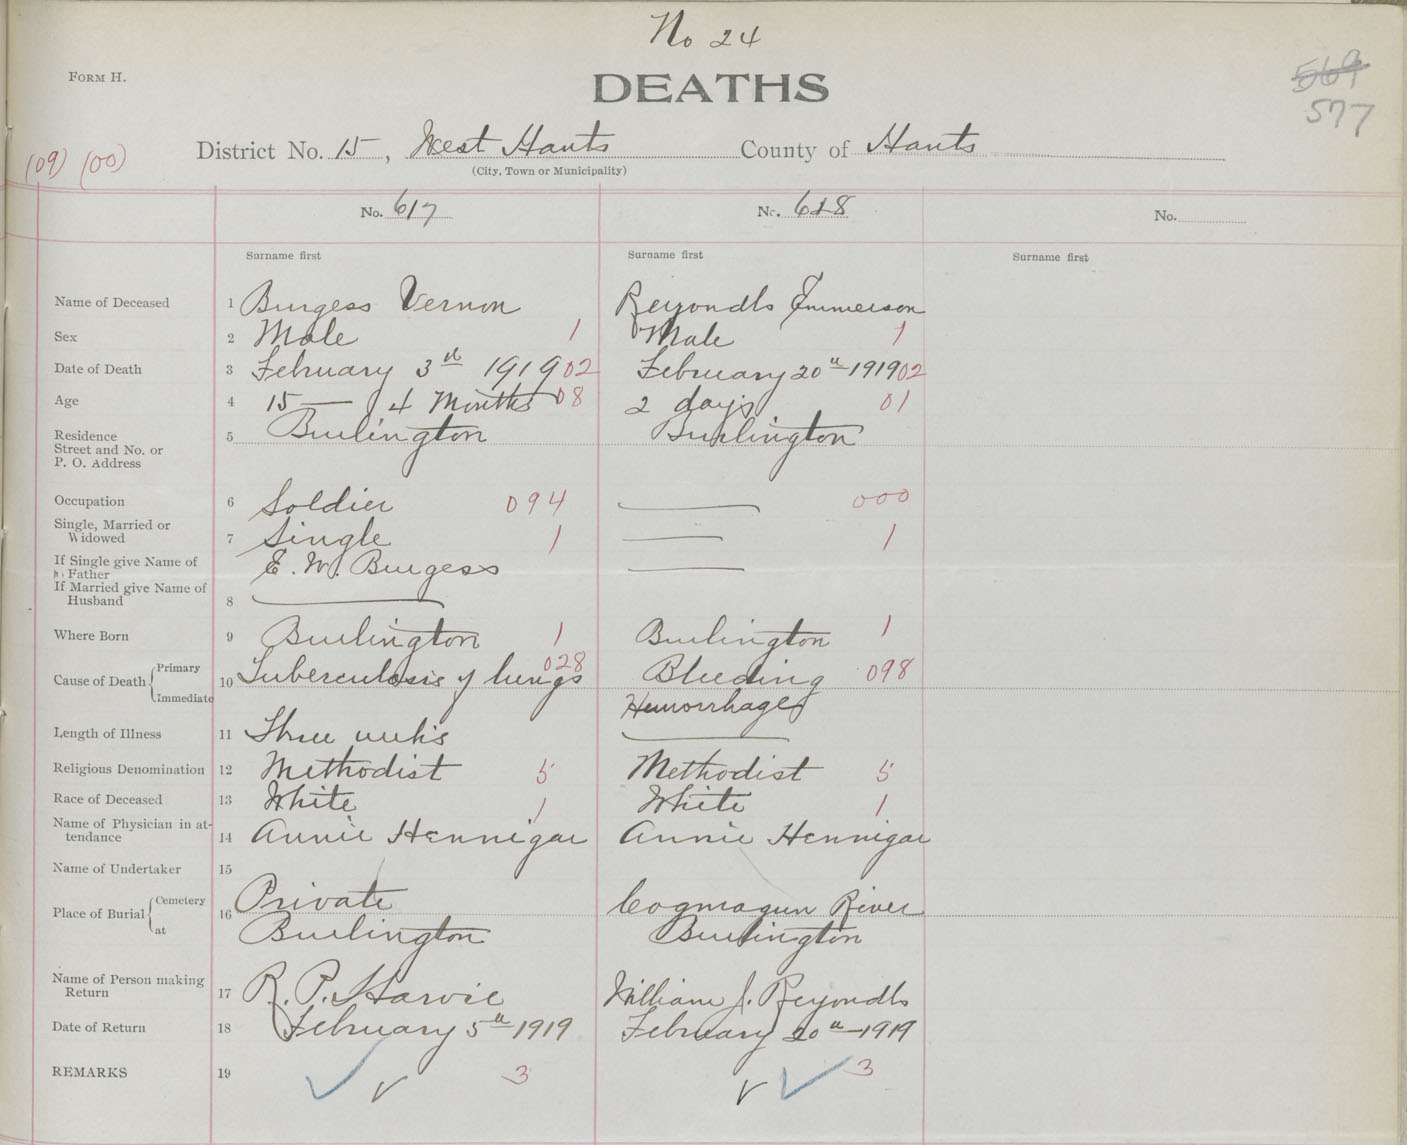 No 24
FORM H.
DEATHS
569
577
District No. 15, West Hants County of Hants
(City, Town or Municipality)
(09) (00)
No. 617 No. 618 No.
Surname first Surname first Surname first
Name of Deceased 1 Burgess Vernon Reyondls Emmerson
Sex 2 Male 1 Male 1
Date of Death 3 February 3th 1919 02 February 20th 1919 02
Age 4 15 — 4 Months 08 2 days 01
Residence Street and No. or P. O. Address 5 Burlington Burlington
Occupation 6 Soldier 094 — 000
Single, Married or Widowed 7 Single 1 — 1
If Single give Name of Father E. W. Burgess —
If Married give Name of Husband 8 —
Where Born 9 Burlington 1 Burlington 1
Cause of Death { Primary 10 Tuberculosis of lungs 028 Bleeding 098
Immediate Hemorrhage
Length of Illness 11 Three weeks —
Religious Denomination 12 Methodist 5 Methodist 5
Race of Deceased 13 White 1 White 1
Name of Physician in attendance 14 Annie Hennigar Annie Hennigar
Name of Undertaker 15
Place of Burial { Cemetery 16 Private Cogmagun River
at Burlington Burlington
Name of Person making Return 17 R. P. Harvie William J. Reyondls
Date of Return 18 February 5th 1919 February 20th 1919
REMARKS 19 ✓ ✓ 3 ✓ ✓ 3